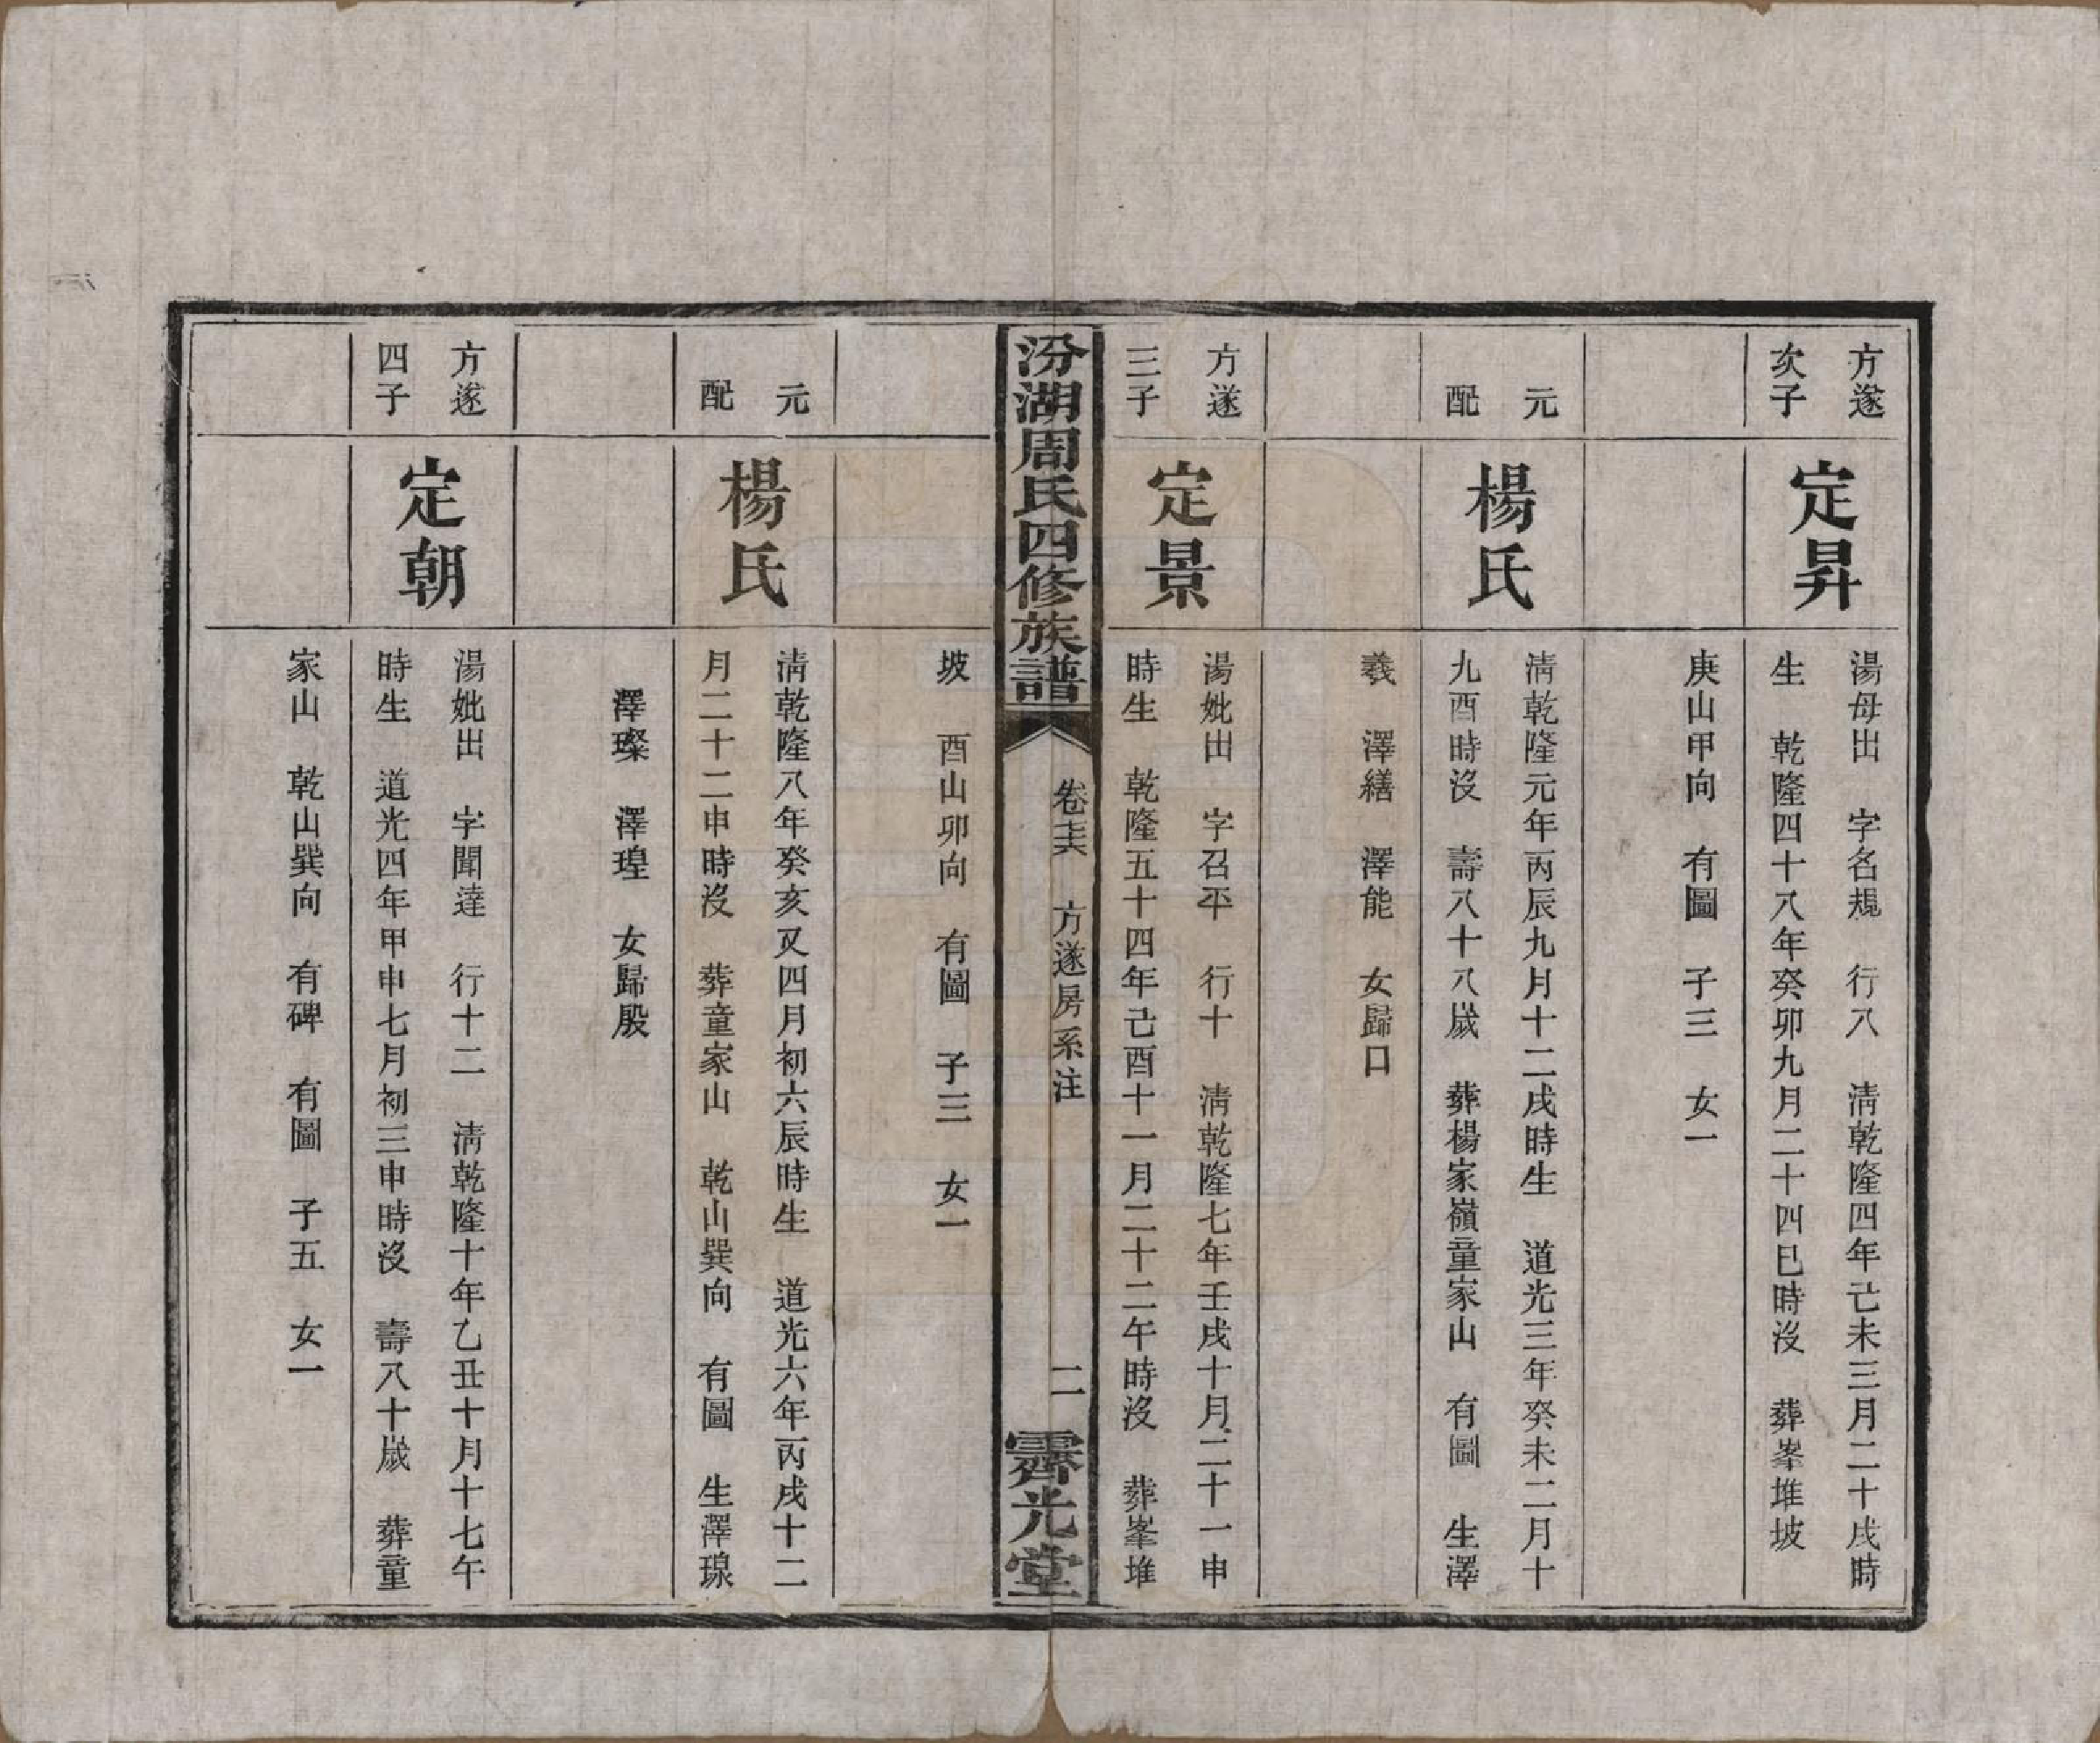 方遂
次子
定昇
湯母出 字名規 行八 清乾隆四年己未三月二十戌時
生 乾隆四十八年癸卯九月二十四巳時沒 葬峯堆坡
庚山甲向 有圖 子三 女一
元
配
楊氏
清乾隆元年丙辰九月十二戌時生 道光三年癸未二月十
九酉時沒 壽八十八歲 葬楊家嶺童家山 有圖 生澤
羲 澤繕 澤能 女歸口
方遂
三子
定景
湯妣出 字召平 行十 清乾隆七年壬戌十月二十一申
時生 乾隆五十四年己酉十一月二十二午時沒 葬峯堆
汾湖周氏四修族譜
卷 方遂房系注
二
霽光堂
坡 酉山卯向 有圖 子三 女一
元
配
楊氏
清乾隆八年癸亥又四月初六辰時生 道光六年丙戌十二
月二十二申時沒 葬童家山 乾山巽向 有圖 生澤琅
澤璨 澤瑝 女歸殷
方遂
四子
定朝
湯妣出 字聞達 行十二 清乾隆十年乙丑十月十七午
時生 道光四年甲申七月初三申時沒 壽八十歲 葬童
家山 乾山巽向 有碑 有圖 子五 女一